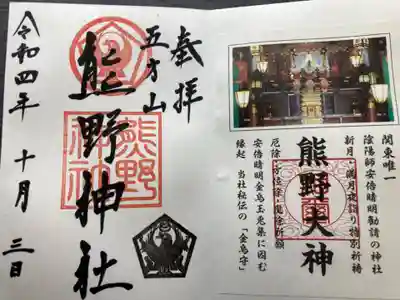 関東唯一
陰陽師安倍晴明勧請の神社
新月・満月夜詣の特別祈祷
熊野大神
厄除・方位除・祈願
安倍晴明金烏玉兎集に因む
縁起 当社秘伝の「金烏守」
奉拝
五方山
熊野神社
熊野神社
令和四年 十月 三日